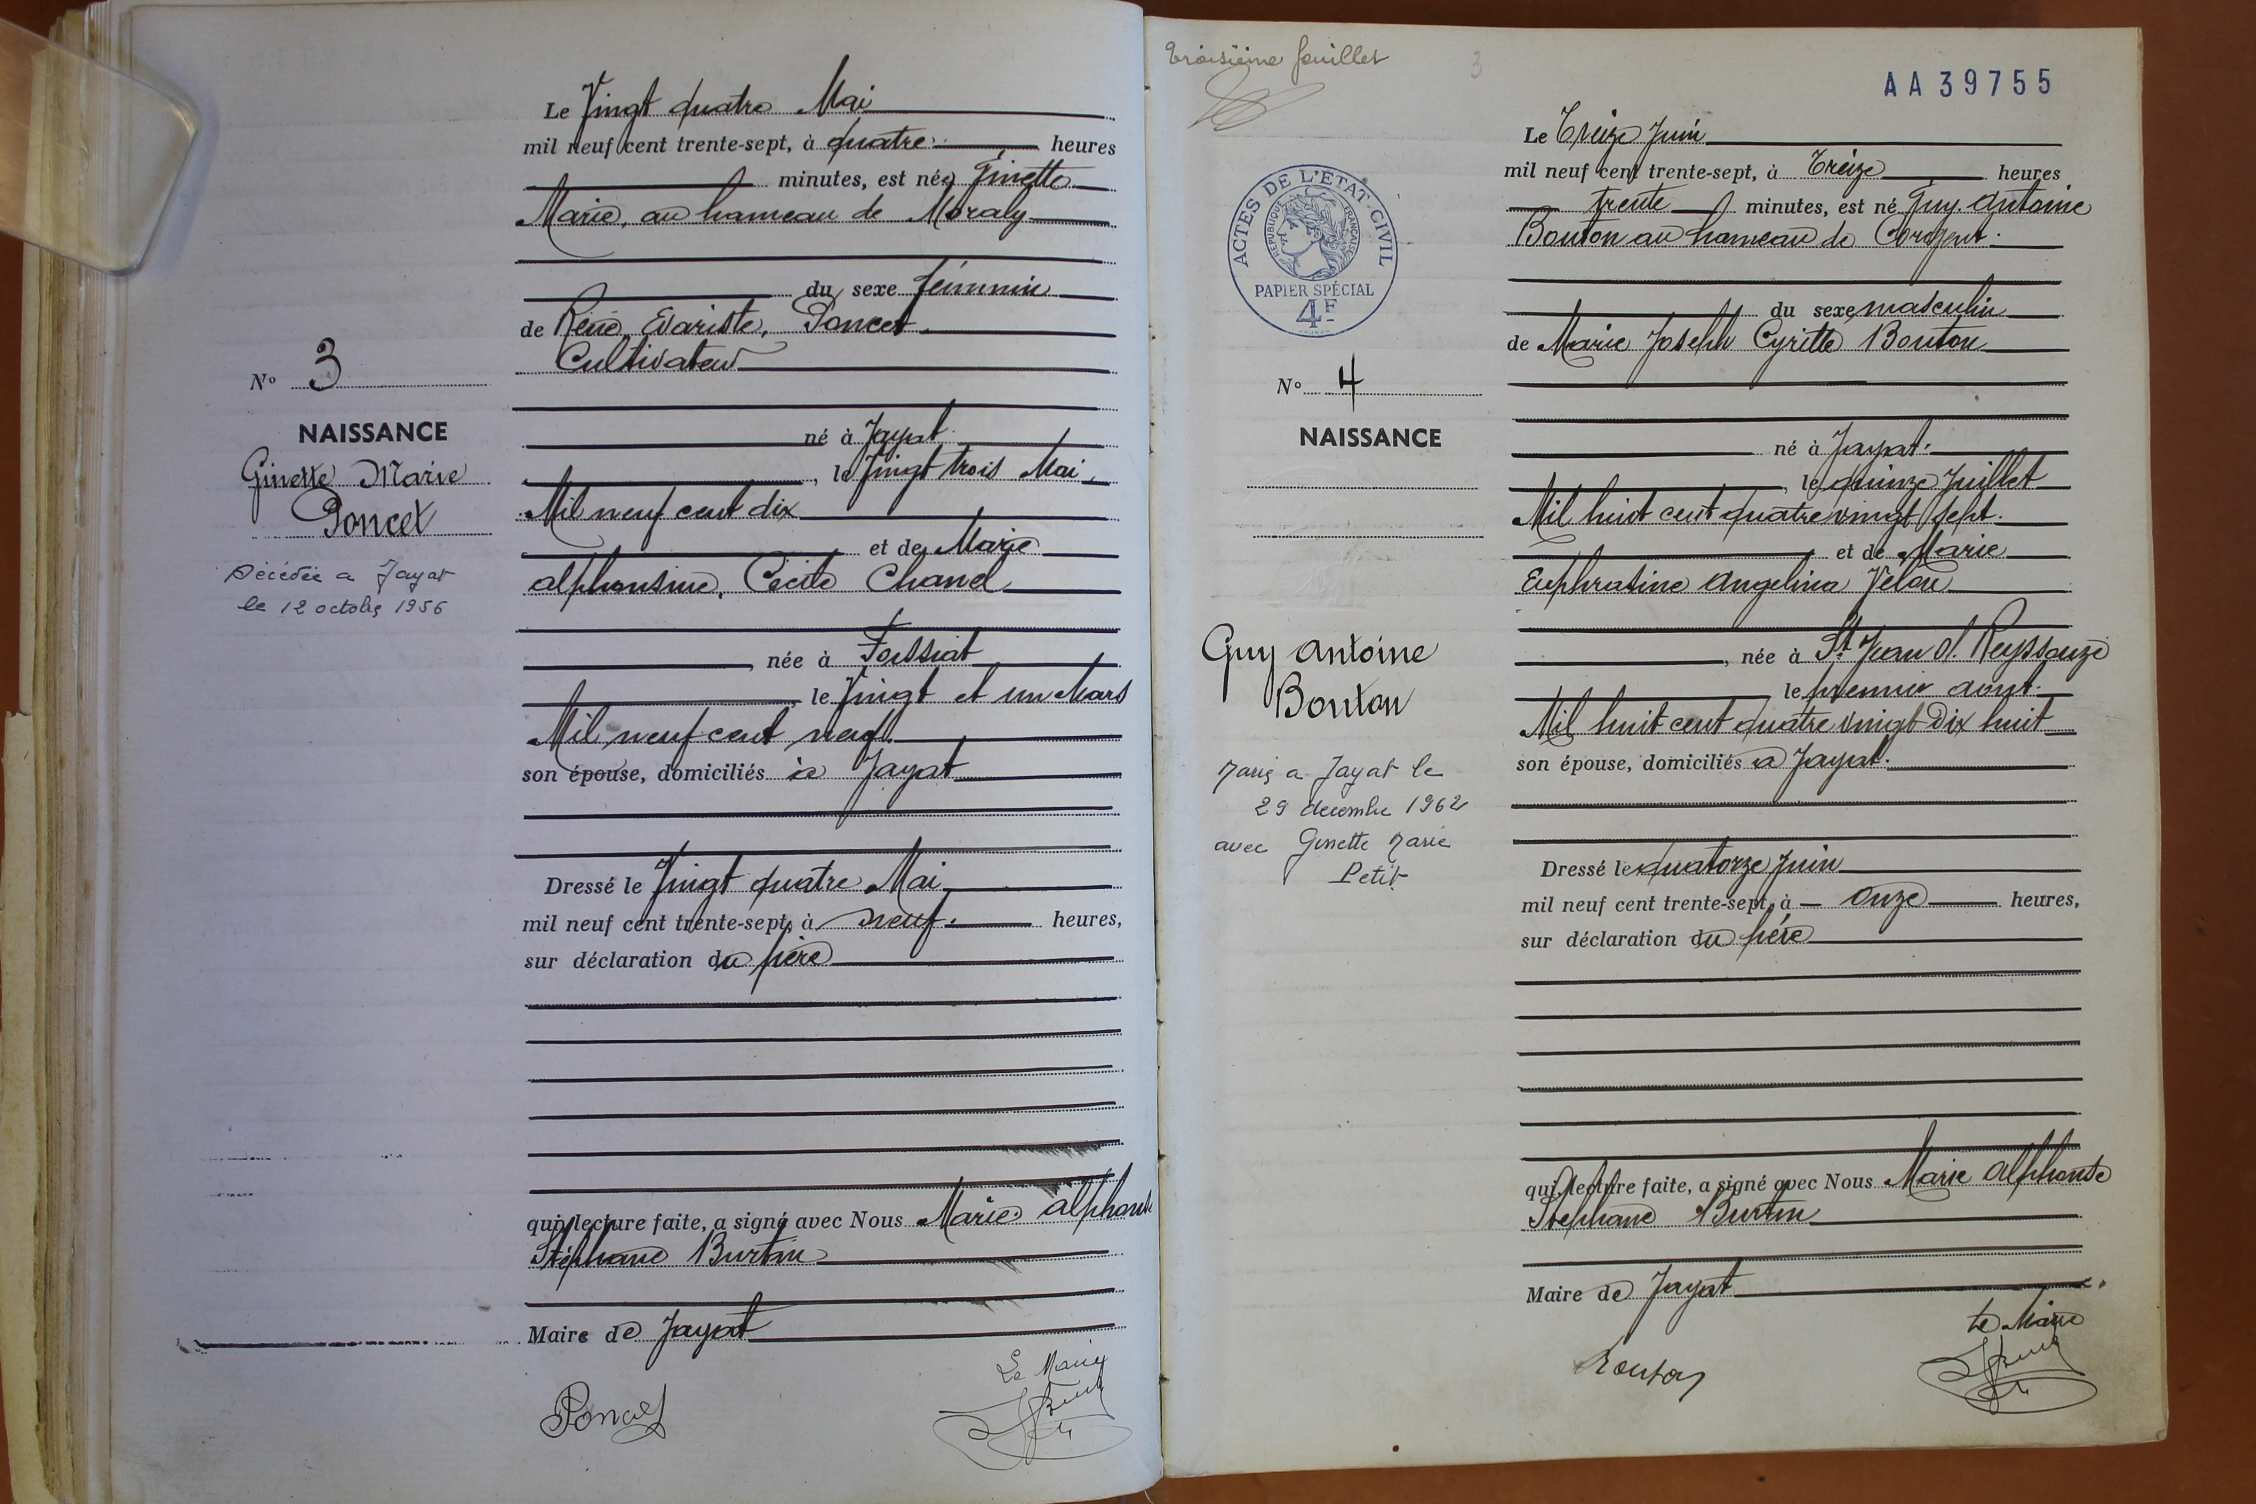 Le Vingt quatre Mai
mil neuf cent trente-sept, à quatre heures
minutes, est née Ginette
Marie, au hameau de Moraly
du sexe féminin
de Réné, Evariste, Poncet
Cultivateur
N° 3
NAISSANCE
Ginette Marie
Poncet
Décédée a Jayat
le 12 octobre 1956
né à Jayat
, le Vingt trois Mai,
Mil neuf cent dix
et de Marie
alphonsine, Cécile Chanel
, née à Foissiat
, le Vingt et un Mars
Mil neuf cent neuf
son épouse, domiciliés à Jayat
Dressé le Vingt quatre Mai
mil neuf cent trente-sept, à neuf heures,
sur déclaration du père
qui, lecture faite, a signé avec Nous Marie alphonse
Stéphane Burtin
Maire de Jayat
Poncet
Le Maire
troisième feuillet
3
AA39755
Le Treize Juin
mil neuf cent trente-sept, à Treize heures
trente minutes, est né Guy Antoine
Bouton au hameau de
ACTES DE L'ETAT-CIVIL
REPUBLIQUE FRANÇAISE
PAPIER SPÉCIAL
4F
du sexe masculin
de Marie Joseph Cyrille Bouton
N° 4
NAISSANCE
Guy Antoine
Bouton
Marié a Jayat le
29 decembre 1962
avec Ginette Marie
Petit
né à Jayat.
, le quinze Juillet
Mil huit cent quatre vingt sept.
et de Marie
Euphrasine Angelina Velon
, née à St Jean s. Reyssouze
le premier aout.
Mil huit cent quatre vingt Dix huit
son épouse, domiciliés à Jayat.
Dressé le quatorze Juin
mil neuf cent trente-sept, à onze heures,
sur déclaration du père
qui, lecture faite, a signé avec Nous Marie Alphonse
Stephane Burtin
Maire de Jayat
Le Maire
Bouton